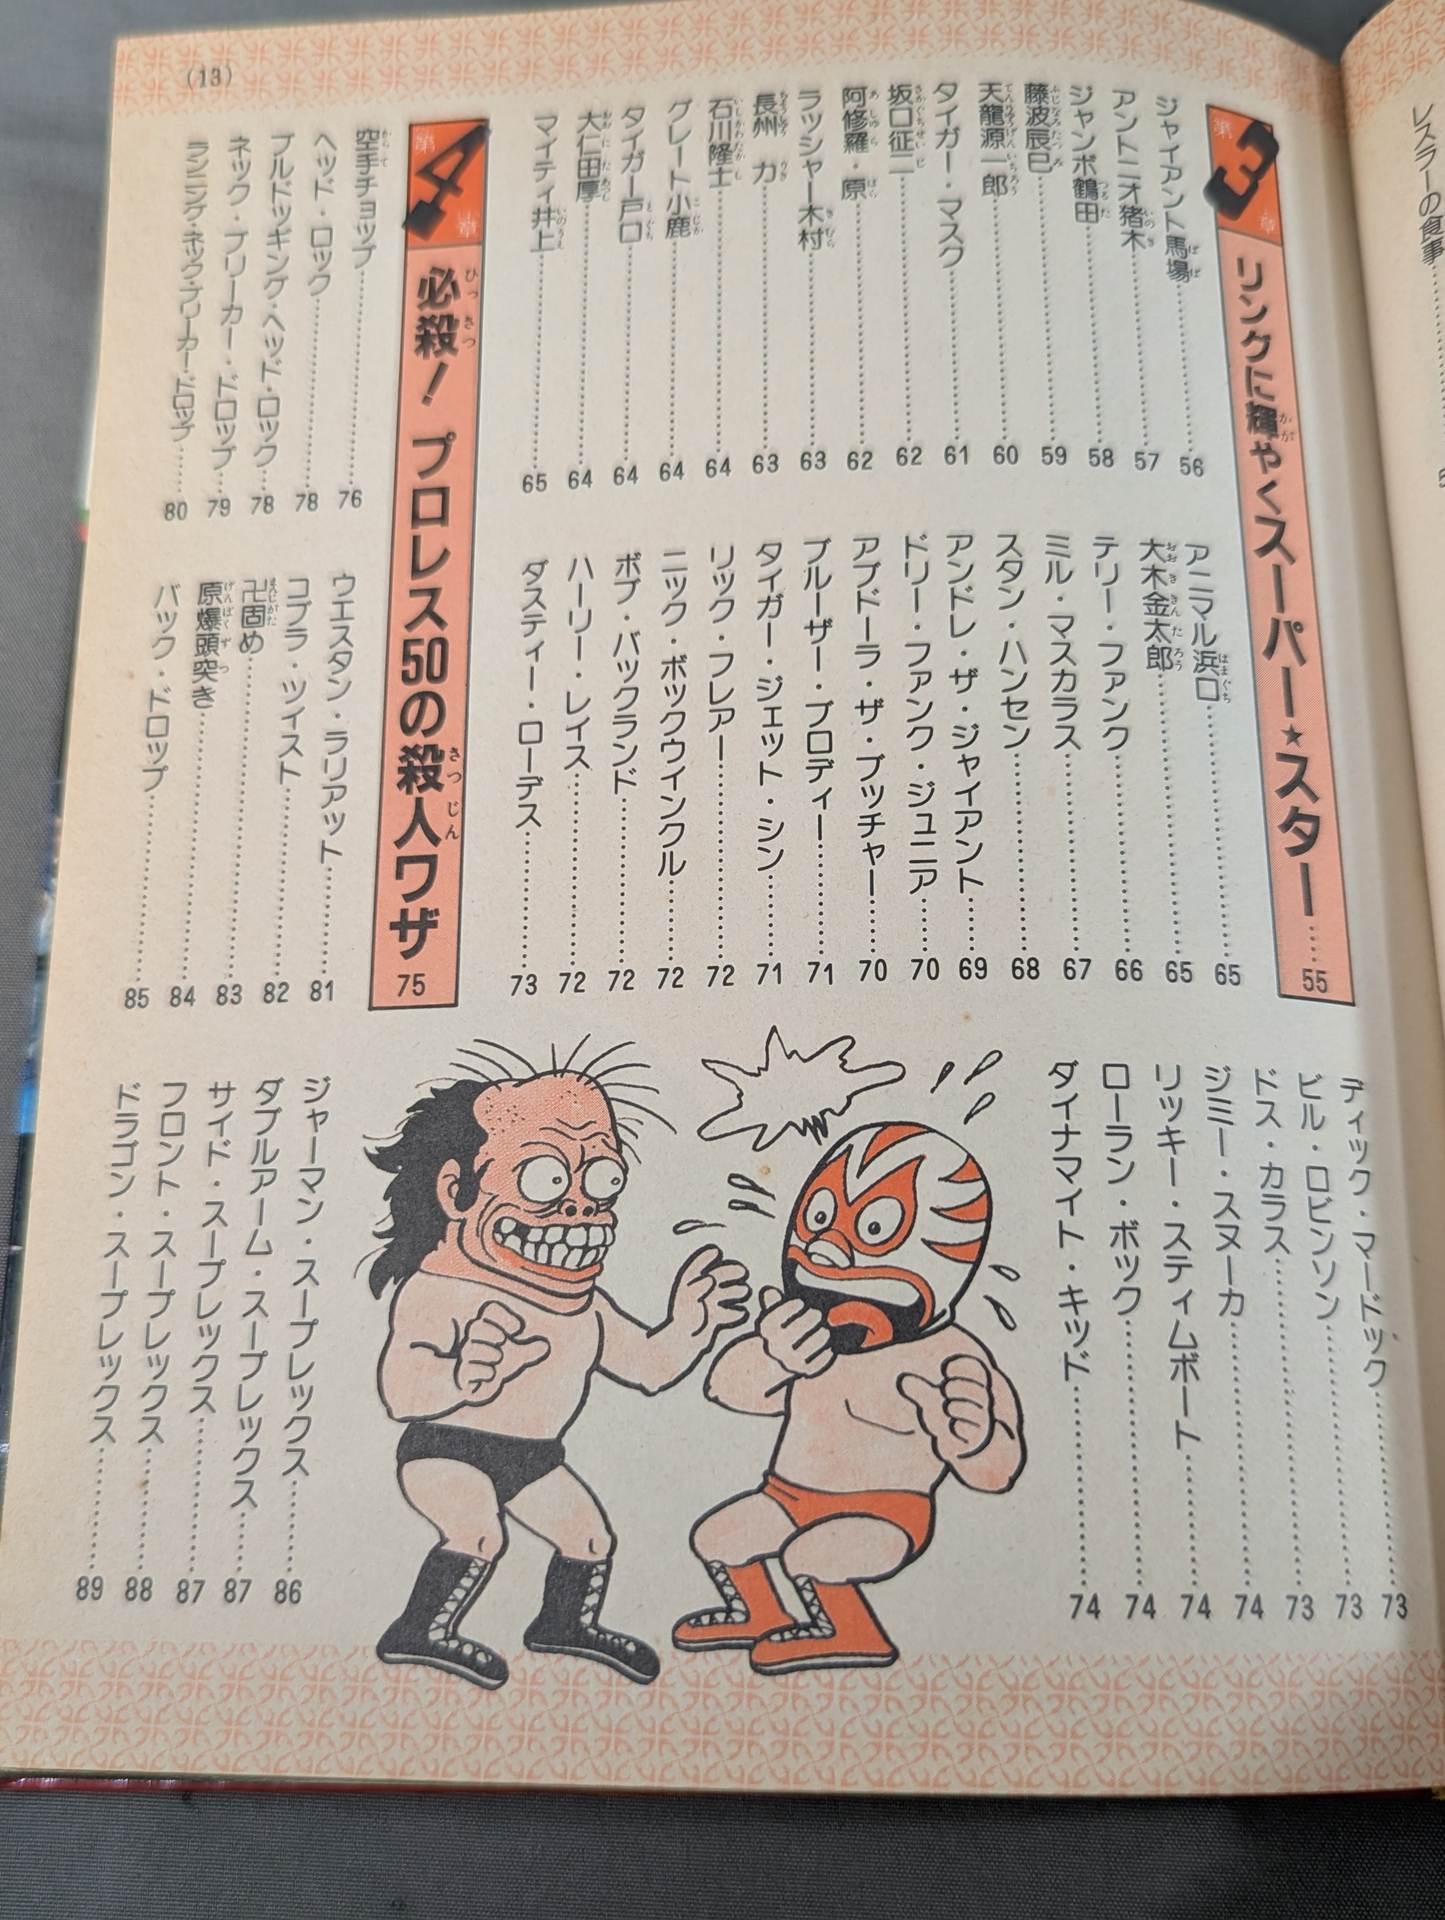 (13)
第3章 リンクに輝やくスーパー★スター……55
ジャイアント馬場……56
アントニオ猪木……57
ジャンボ鶴田……58
藤波辰巳……59
天龍源一郎……60
タイガー・マスク……61
坂口征二……62
阿修羅・原……62
ラッシャー木村……63
長州 力……63
石川隆士……64
グレート小鹿……64
タイガー戸口……64
大仁田厚……64
マイティ井上……65
アニマル浜口……65
大木金太郎……65
テリー・ファンク……66
ミル・マスカラス……67
スタン・ハンセン……68
アンドレ・ザ・ジャイアント……69
ドリー・ファンク・ジュニア……70
アブドーラ・ザ・ブッチャー……70
ブルーザー・ブロディー……71
タイガー・ジェット・シン……71
リック・フレアー……72
ニック・ボックウインクル……72
ボブ・バックランド……72
ハーリー・レイス……72
ダスティー・ローデス……73
ディック・マードック……73
ビル・ロビンソン……73
ドス・カラス……73
ジミー・スヌーカ……74
リッキー・スティムボート……74
ローラン・ボック……74
ダイナマイト・キッド……74
第4章 必殺! プロレス50の殺人ワザ 75
空手チョップ……76
ヘッド・ロック……78
ブルドッキング・ヘッド・ロック……78
ネック・ブリーカー・ドロップ……79
ランニング・ネック・ブリーカー・ドロップ……80
ウエスタン・ラリアット……81
コブラ・ツイスト……82
卍固め……83
原爆頭突き……84
バック・ドロップ……85
ジャーマン・スープレックス……86
ダブルアーム・スープレックス……87
サイド・スープレックス……87
フロント・スープレックス……88
ドラゴン・スープレックス……89
レスラーの食事